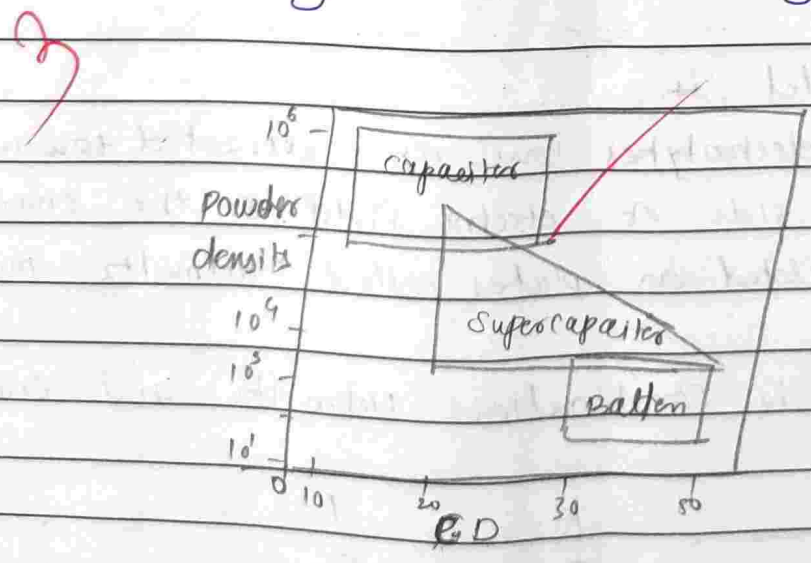 3
10⁶
capaeiter
Powder
density
10⁴
Supercapaiter
10³
Batten
10¹
0 10 20 30 50
E D